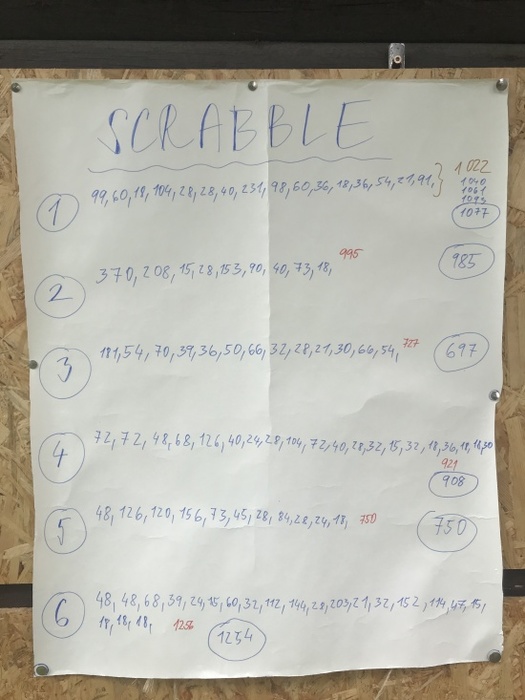 SCRABBLE
1 99, 60, 18, 104, 28, 28, 40, 231, 98, 60, 36, 18, 36, 54, 21, 91, } 1022
1040
1061
1077
2 370, 208, 15, 28, 153, 90, 40, 73, 18, 995 985
3 181, 54, 70, 39, 36, 50, 66, 32, 28, 21, 30, 66, 54, 727 697
4 72, 72, 48, 68, 126, 40, 24, 28, 104, 72, 40, 28, 32, 15, 32, 18, 36, 18, 18, 30
921
908
5 48, 126, 120, 156, 73, 45, 28, 84, 28, 24, 18, 750 750
6 48, 48, 68, 39, 24, 15, 60, 32, 112, 144, 28, 203, 21, 32, 152, 114, 47, 15,
18, 18, 18, 1256 1254